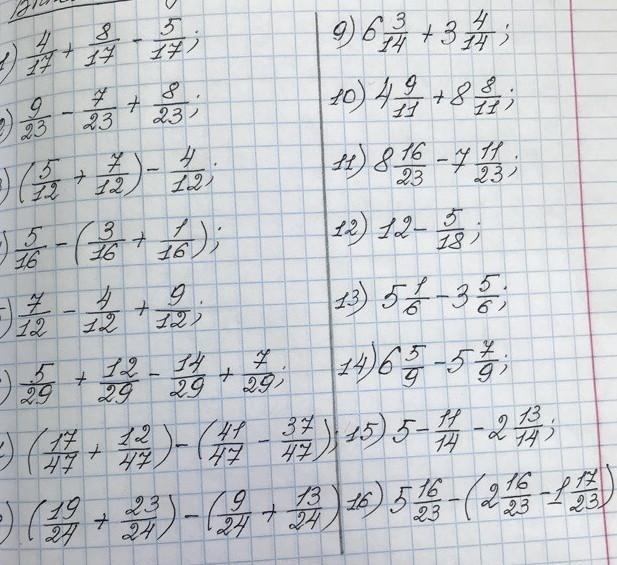 1) 4/17 + 8/17 - 5/17;
2) 9/23 - 7/23 + 8/23;
3) (5/12 + 7/12) - 4/12;
4) 5/16 - (3/16 + 1/16);
5) 7/12 - 4/12 + 9/12;
6) 5/29 + 12/29 - 14/29 + 7/29;
7) (17/47 + 12/47) - (41/47 - 37/47);
8) (19/24 + 23/24) - (9/24 + 13/24)
9) 6 3/14 + 3 4/14;
10) 4 9/11 + 8 8/11;
11) 8 16/23 - 7 11/23;
12) 12 - 5/18;
13) 5 1/6 - 3 5/6;
14) 6 5/9 - 5 7/9;
15) 5 - 11/14 - 2 13/14;
16) 5 16/23 - (2 16/23 - 1 17/23)